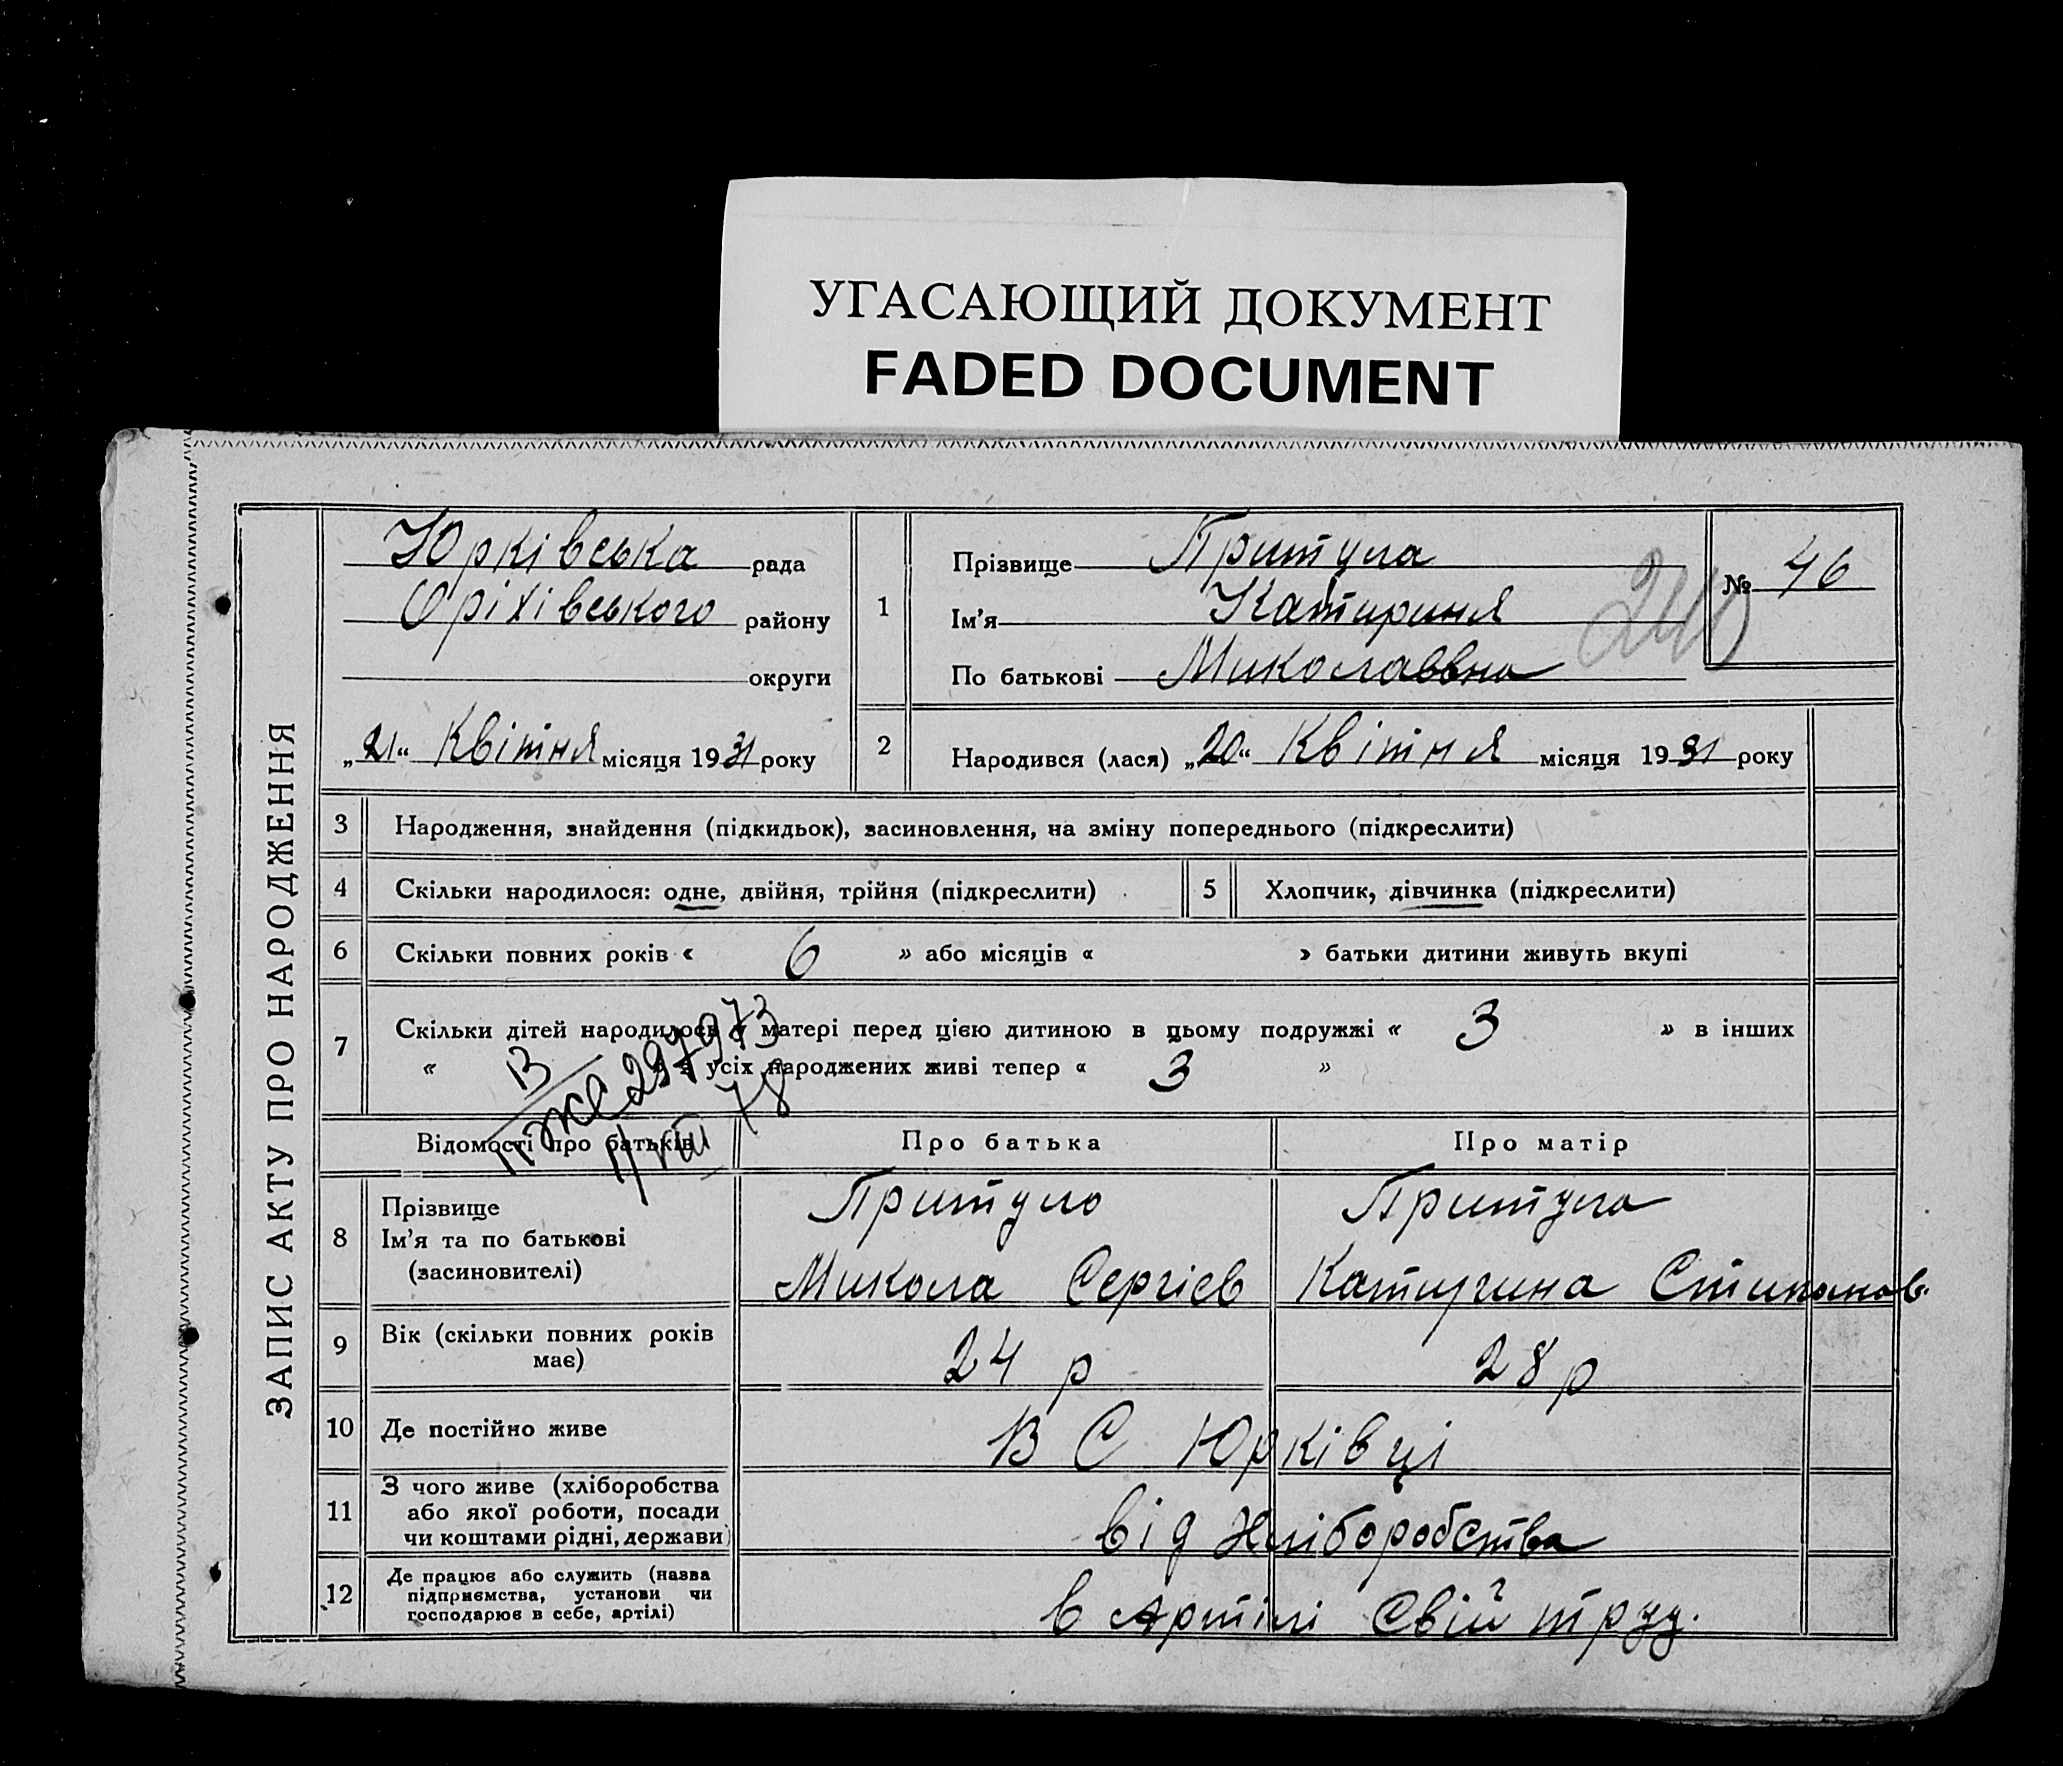 УГАСАЮЩИЙ ДОКУМЕНТ
FADED DOCUMENT
ЗАПИС АКТУ ПРО НАРОДЖЕННЯ
Юрківська рада
Оріхівського району
округи
„21“ Квітня місяця 1931 року
1 Прізвище Притула
Ім'я Катириня
По батькові Миколаввна
№ 46
240
2 Народився (лася) „20“ Квітня місяця 1931 року
3 Народження, знайдення (підкидьок), засиновлення, на зміну попереднього (підкреслити)
4 Скільки народилося: одне, двійня, трійня (підкреслити)
5 Хлопчик, дівчинка (підкреслити)
6 Скільки повних років « 6 » або місяців « » батьки дитини живуть вкупі
7 Скільки дітей народилось у матері перед цією дитиною в цьому подружжі « 3 » в інших
« » з усіх народжених живі тепер « 3 »
297973
78
Відомості про батьків
Про батька
Про матір
8 Прізвище
Ім'я та по батькові
(засиновителі)
Притула
Микола Сергієв
Притула
Катирина Стипанов.
9 Вік (скільки повних років
має)
24 р
28 р
10 Де постійно живе
В С Юрківці
11 З чого живе (хліборобства
або якої роботи, посади
чи коштами рідні, держави)
від Хліборобства
12 Де працює або служить (назва
підприємства, установи чи
господарює в себе, артілі)
в Артілі Свій труд.